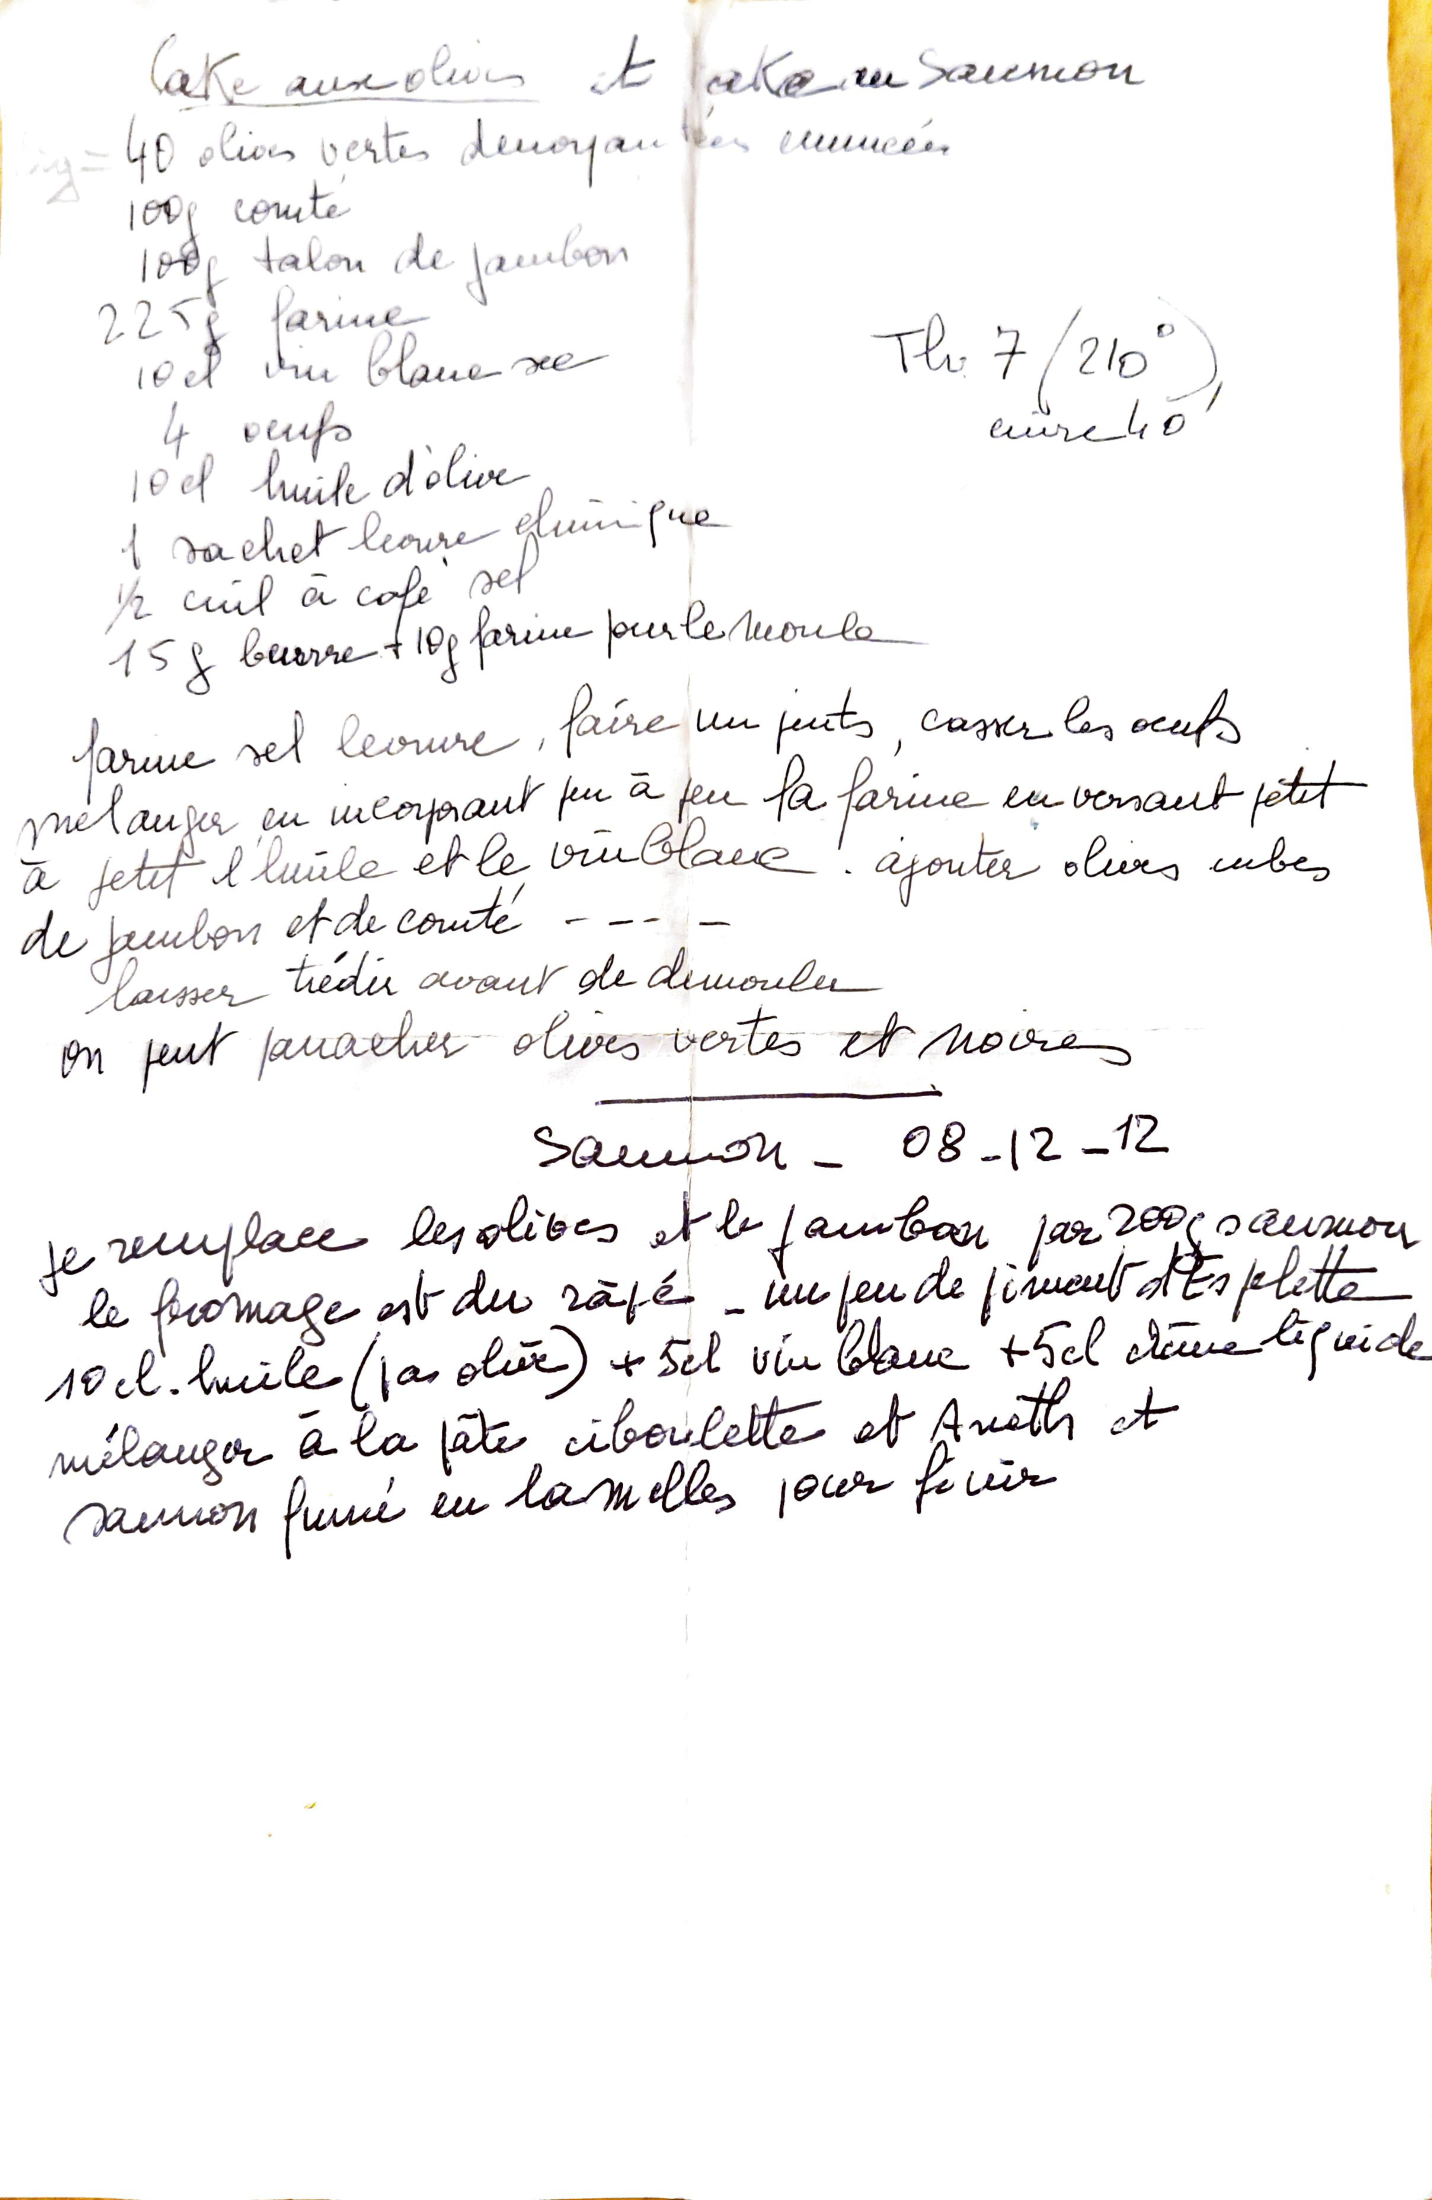 Cake aux olives et cake au Saumon
40 olives vertes denoyautées émincées
100g comté
100g talon de jambon
225g farine
10cl vin blanc sec
4 oeufs
10cl huile d'olive
1 sachet levure chimique
1/2 cuil à café sel
15g beurre + 10g farine pour le moule
Th. 7 (210°)
cuire 40'
farine sel levure, faire un puits, casser les oeufs
mélanger en incorporant peu à peu la farine en versant petit
à petit l'huile et le vin blanc. ajouter olives cubes
de jambon et de comté - - - -
laisser tiédir avant de demouler
on peut panacher olives vertes et noires
Saumon - 08-12-12
je remplace les olives et le jambon par 200g saumon
le fromage est du râpé - un peu de piment d'Espelette
10 cl. huile (pas olive) + 5cl vin blanc + 5cl crème liquide
mélanger à la pâte ciboulette et Aneth et
saumon fumé en lamelles pour finir